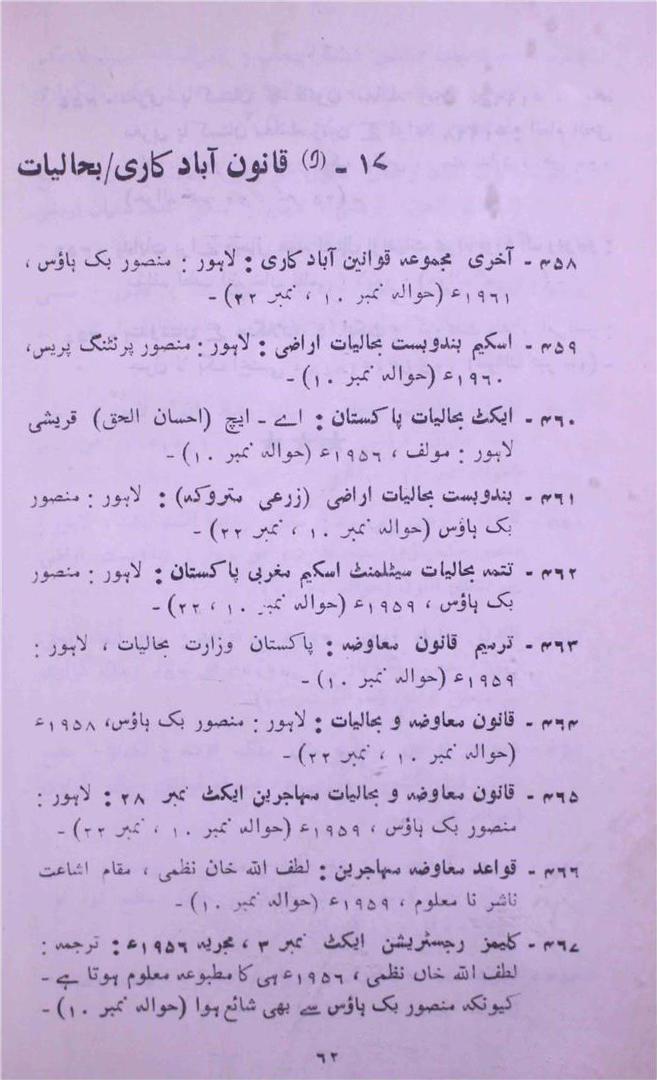 ۱۷ - (و) قانون آبادکاری/بحالیات
۴۵۸ - آخری مجموعہ قوانین آبادکاری : لاہور : منصور بک ہاؤس ،
۱۹۶۱ء (حوالہ نمبر ۱۰ ، نمبر ۲۲) -
۴۵۹ - اسکیم بندوبست بحالیات اراضی : لاہور : منصور پرنٹنگ پریس،
۱۹۶۰ء (حوالہ نمبر ۱۰) -
۴۶۰ - ایکٹ بحالیات پاکستان : اے - ایچ (احسان الحق) قریشی
لاہور : مولف ، ۱۹۵۶ء (حوالہ نمبر ۱۰) -
۴۶۱ - بندوبست بحالیات اراضی (زرعی متروکہ) : لاہور : منصور
بک ہاؤس (حوالہ نمبر ۱۰ ، نمبر ۲۲) -
۴۶۲ - تتمہ بحالیات سیٹلمنٹ اسکیم مغربی پاکستان : لاہور : منصور
بک ہاؤس ، ۱۹۵۹ء (حوالہ نمبر ۱۰ ، ۲۲) -
۴۶۳ - ترمیم قانون معاوضہ : پاکستان وزارت بحالیات ، لاہور :
۱۹۵۹ء (حوالہ نمبر ۱۰) -
۴۶۴ - قانون معاوضہ و بحالیات : لاہور : منصور بک ہاؤس، ۱۹۵۸ء
(حوالہ نمبر ۱۰ ، نمبر ۲۲) -
۴۶۵ - قانون معاوضہ و بحالیات مہاجرین ایکٹ نمبر ۲۸ : لاہور :
منصور بک ہاؤس ، ۱۹۵۹ء (حوالہ نمبر ۱۰ ، نمبر ۲۲) -
۴۶۶ - قواعد معاوضہ مہاجرین : لطف اللہ خان نظمی ، مقام اشاعت
ناشر نا معلوم ، ۱۹۵۹ء (حوالہ نمبر ۱۰) -
۴۶۷ - کلیمز رجسٹریشن ایکٹ نمبر ۳ ، مجریہ ۱۹۵۶ء : ترجمہ :
لطف اللہ خاں نظمی ، ۱۹۵۶ء ہی کا مطبوعہ معلوم ہوتا ہے -
کیونکہ منصور بک ہاؤس سے بھی شائع ہوا (حوالہ نمبر ۱۰) -
۶۲